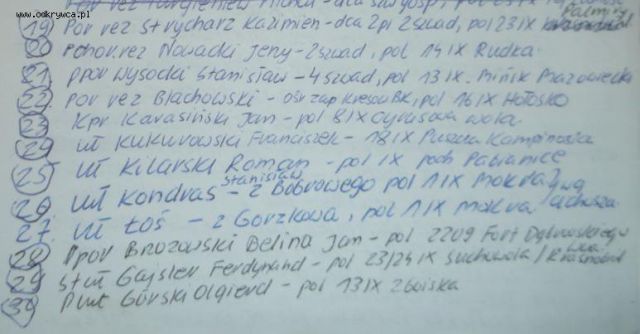 www.odkrywca.pl
19) Por rez Strycharz Kazimierz - dca 2pl 2szwad, pol 23 IX Palmiry
20 pchor rez Nowacki Jerzy - 2szwad, pol 14 IX Rudka
21 ppor Wysocki Stanisław - 4 szwad, pol 13 IX. Mińsk Mazowiecki
22 por rez Blachowski - ośr zap Kresow BK, pol 16 IX Hołosko
23 Kpr Karasiński Jan - pol 8 IX Cyrusowa Wola
24 uł Kukurowski Franciszek - 18 IX Puszcza Kampinoska
25 uł Kilarski Roman - pol IX pod Pabianice
26 uł Kondras Stanisław - z Bobrowego pol 1 IX Mokra
27. uł Łoś - z Gorzkowa, pol 1 IX Mokra
28 ppor Brozowski Belina Jan - pol 2209 Fort Dąbrowskiego
29 st uł Gajsler Ferdynand - pol 23/24 IX Suchowola / Krasnobród
30 plut Górski Olgierd - pol 13 IX Zboiska